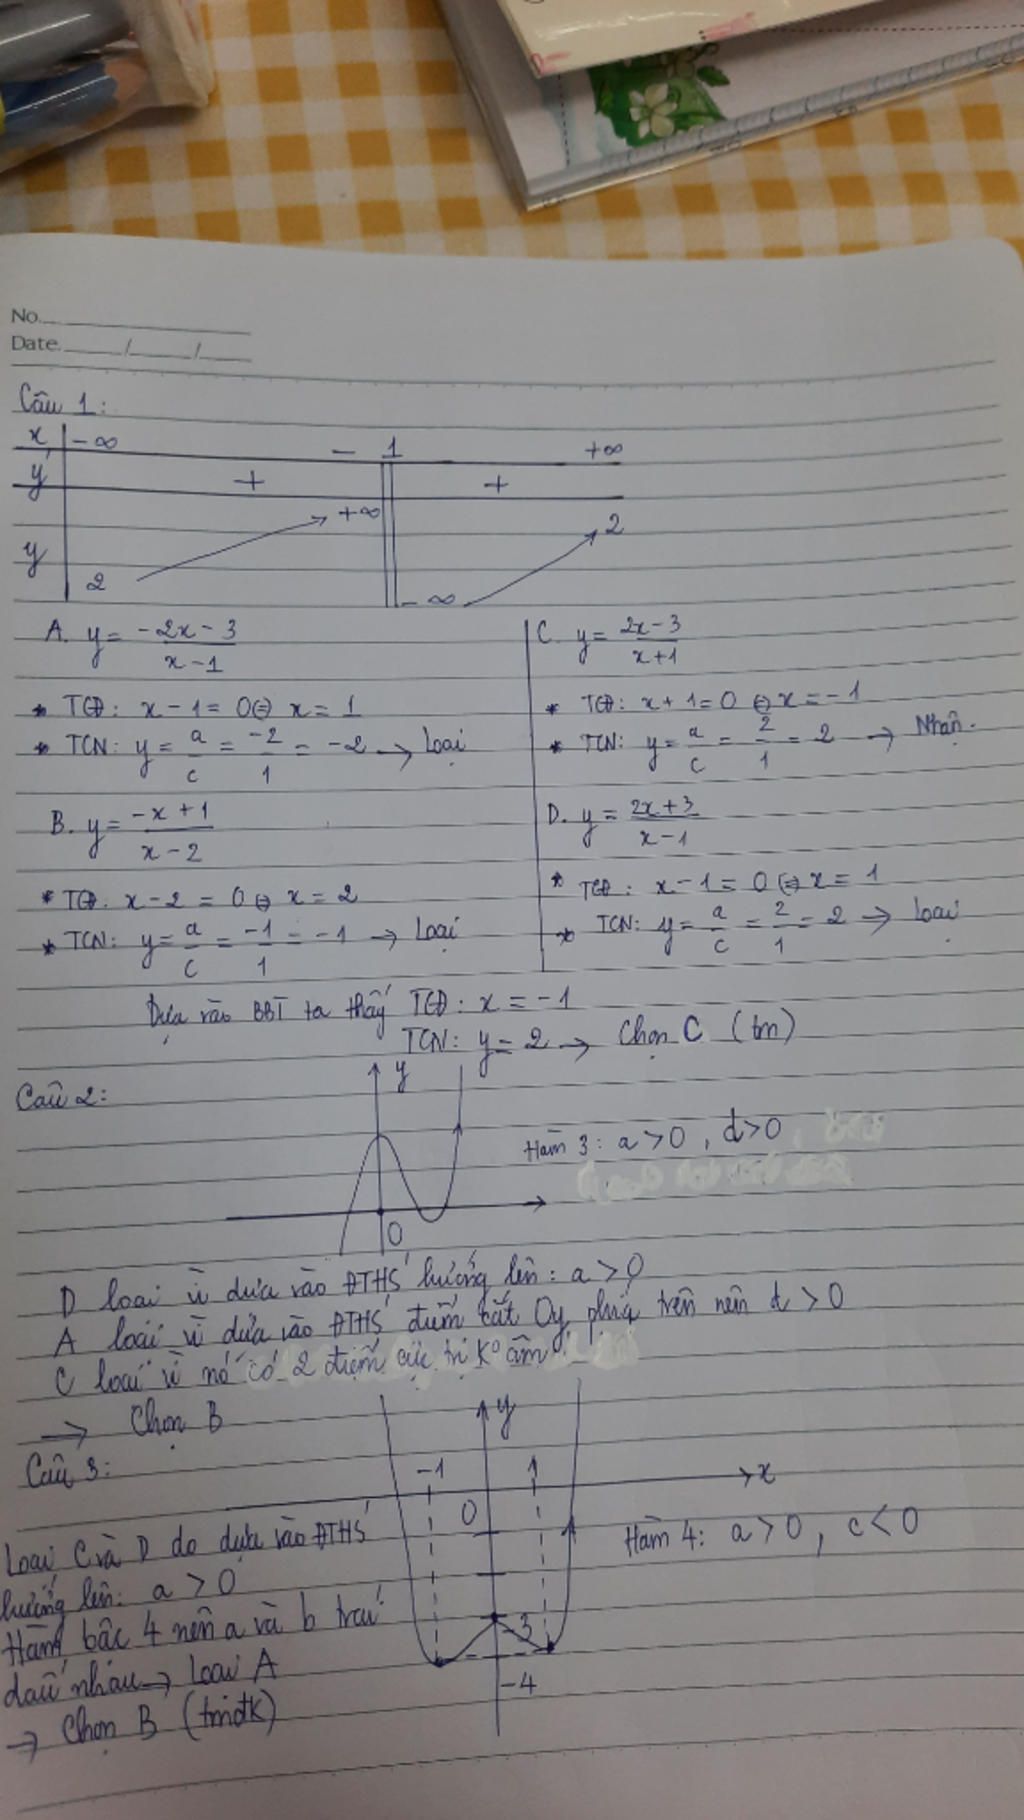 No.
Date. / /
Câu 1:
x -∞ - 1 +∞
y' + +
y 2 +∞ -∞ 2
A. y = (-2x-3)/(x-1)
* TCĐ: x-1 = 0 ⇔ x = 1
* TCN: y = a/c = -2/1 = -2 → Loại
B. y = (-x+1)/(x-2)
* TCĐ: x-2 = 0 ⇔ x = 2
* TCN: y = a/c = -1/1 = -1 → Loại
C. y = (2x-3)/(x+1)
* TCĐ: x+1 = 0 ⇔ x = -1
* TCN: y = a/c = 2/1 = 2 → Nhận.
D. y = (2x+3)/(x-1)
* TCĐ: x-1 = 0 ⇔ x = 1
* TCN: y = a/c = 2/1 = 2 → Loại
Dựa vào BBT ta thấy TCĐ: x = -1
TCN: y = 2 → Chọn C (tm)
Câu 2:
y
O
Hàm 3: a > 0, d > 0
D loại vì dựa vào ĐTHS hướng lên: a > 0
A loại vì dựa vào ĐTHS điểm cắt Oy phía trên nên d > 0
C loại vì nó có 2 điểm cực trị K° âm
→ Chọn B
Câu 3:
y
-1 1 x
O
-3
-4
Hàm 4: a > 0, c < 0
Loại C và D do dựa vào ĐTHS
hướng lên: a > 0
Hàm bậc 4 nên a và b trái
dấu nhau → Loại A
→ Chọn B (tmđk)